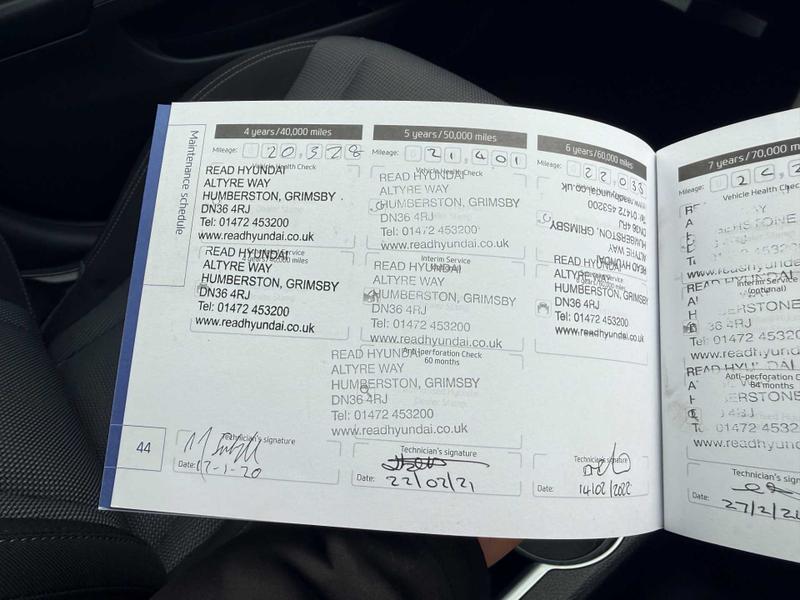 Maintenance schedule
4 years/40,000 miles
Mileage: 20,328
Vehicle Health Check
READ HYUNDAI
ALTYRE WAY
HUMBERSTON, GRIMSBY
DN36 4RJ
Tel: 01472 453200
www.readhyundai.co.uk
READ HYUNDAI
ALTYRE WAY
HUMBERSTON, GRIMSBY
DN36 4RJ
Tel: 01472 453200
www.readhyundai.co.uk
Technician's signature
Date: 17-1-20
44
5 years/50,000 miles
Mileage: 21,401
Vehicle Health Check
READ HYUNDAI
ALTYRE WAY
HUMBERSTON, GRIMSBY
DN36 4RJ
Tel: 01472 453200
www.readhyundai.co.uk
Interim Service
READ HYUNDAI
ALTYRE WAY
HUMBERSTON, GRIMSBY
DN36 4RJ
Tel: 01472 453200
www.readhyundai.co.uk
Anti-perforation Check
60 months
READ HYUNDAI
ALTYRE WAY
HUMBERSTON, GRIMSBY
DN36 4RJ
Tel: 01472 453200
www.readhyundai.co.uk
Technician's signature
Date: 22/02/21
6 years/60,000 miles
Mileage: 22,03
READ HYUNDAI
ALTYRE WAY
HUMBERSTON, GRIMSBY
DN36 4RJ
Tel: 01472 453200
www.readhyundai.co.uk
READ HYUNDAI
ALTYRE WAY
HUMBERSTON, GRIMSBY
DN36 4RJ
Tel: 01472 453200
www.readhyundai.co.uk
Technician's signature
Date: 14/02/2022
7 years/70,000 m
Mileage:
Vehicle Health Chec
WAY
ERSTONE
453200
www.readhyunda
Interim Service
(optional)
READ HYUNDAI
ERSTONE
36 4RJ
Tel: 01472 4532
www.readhyund
Anti-perforation C
84 months
READ HYUNDAI
ERSTONE
4RJ
01472 4532
www.readhyund
Technician's sign
Date: 27/2/2